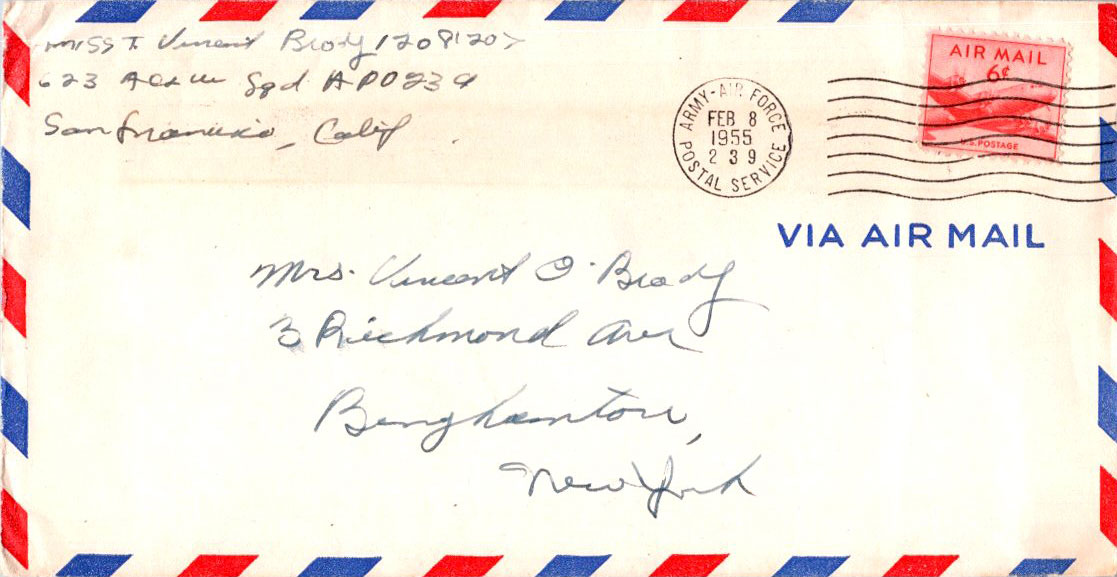 M/SSgt Vincent Brady 1208120
623 AC&W Sqd APO 239
San Francisco, Calif
ARMY-AIR FORCE
FEB 8
1955
2 39
POSTAL SERVICE
AIR MAIL
6¢
U.S. POSTAGE
VIA AIR MAIL
Mrs. Vincent O. Brady
3 Richmond Ave
Binghamton,
New York